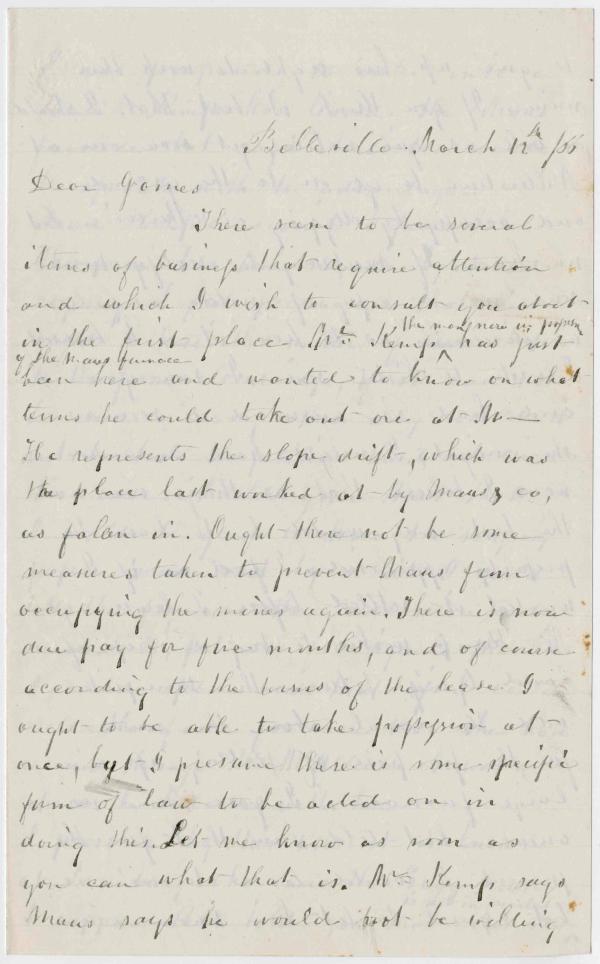 Belleville March 12th /55
Dear James
There seem to be several
items of business that require attention
and which I wish to consult you about
in the first place Mr. Kemp ^ has just
the man now in possession
of the Maus furnace
been here and wanted to know on what
terms he could take out ore at M—
He represents the slope drift, which was
the place last worked at by Maus & co,
as falen in. Ought there not be some
measures taken to prevent Maus from
occupying the mines again. There is now
due pay for five months, and of course
according to the terms of the lease I
ought to be able to take possession at
once, but I presume there is some specific
form of law to be acted on in
doing this. Let me know as soon as
you can what that is. Mr. Kemp says
Maus says he would not be willing